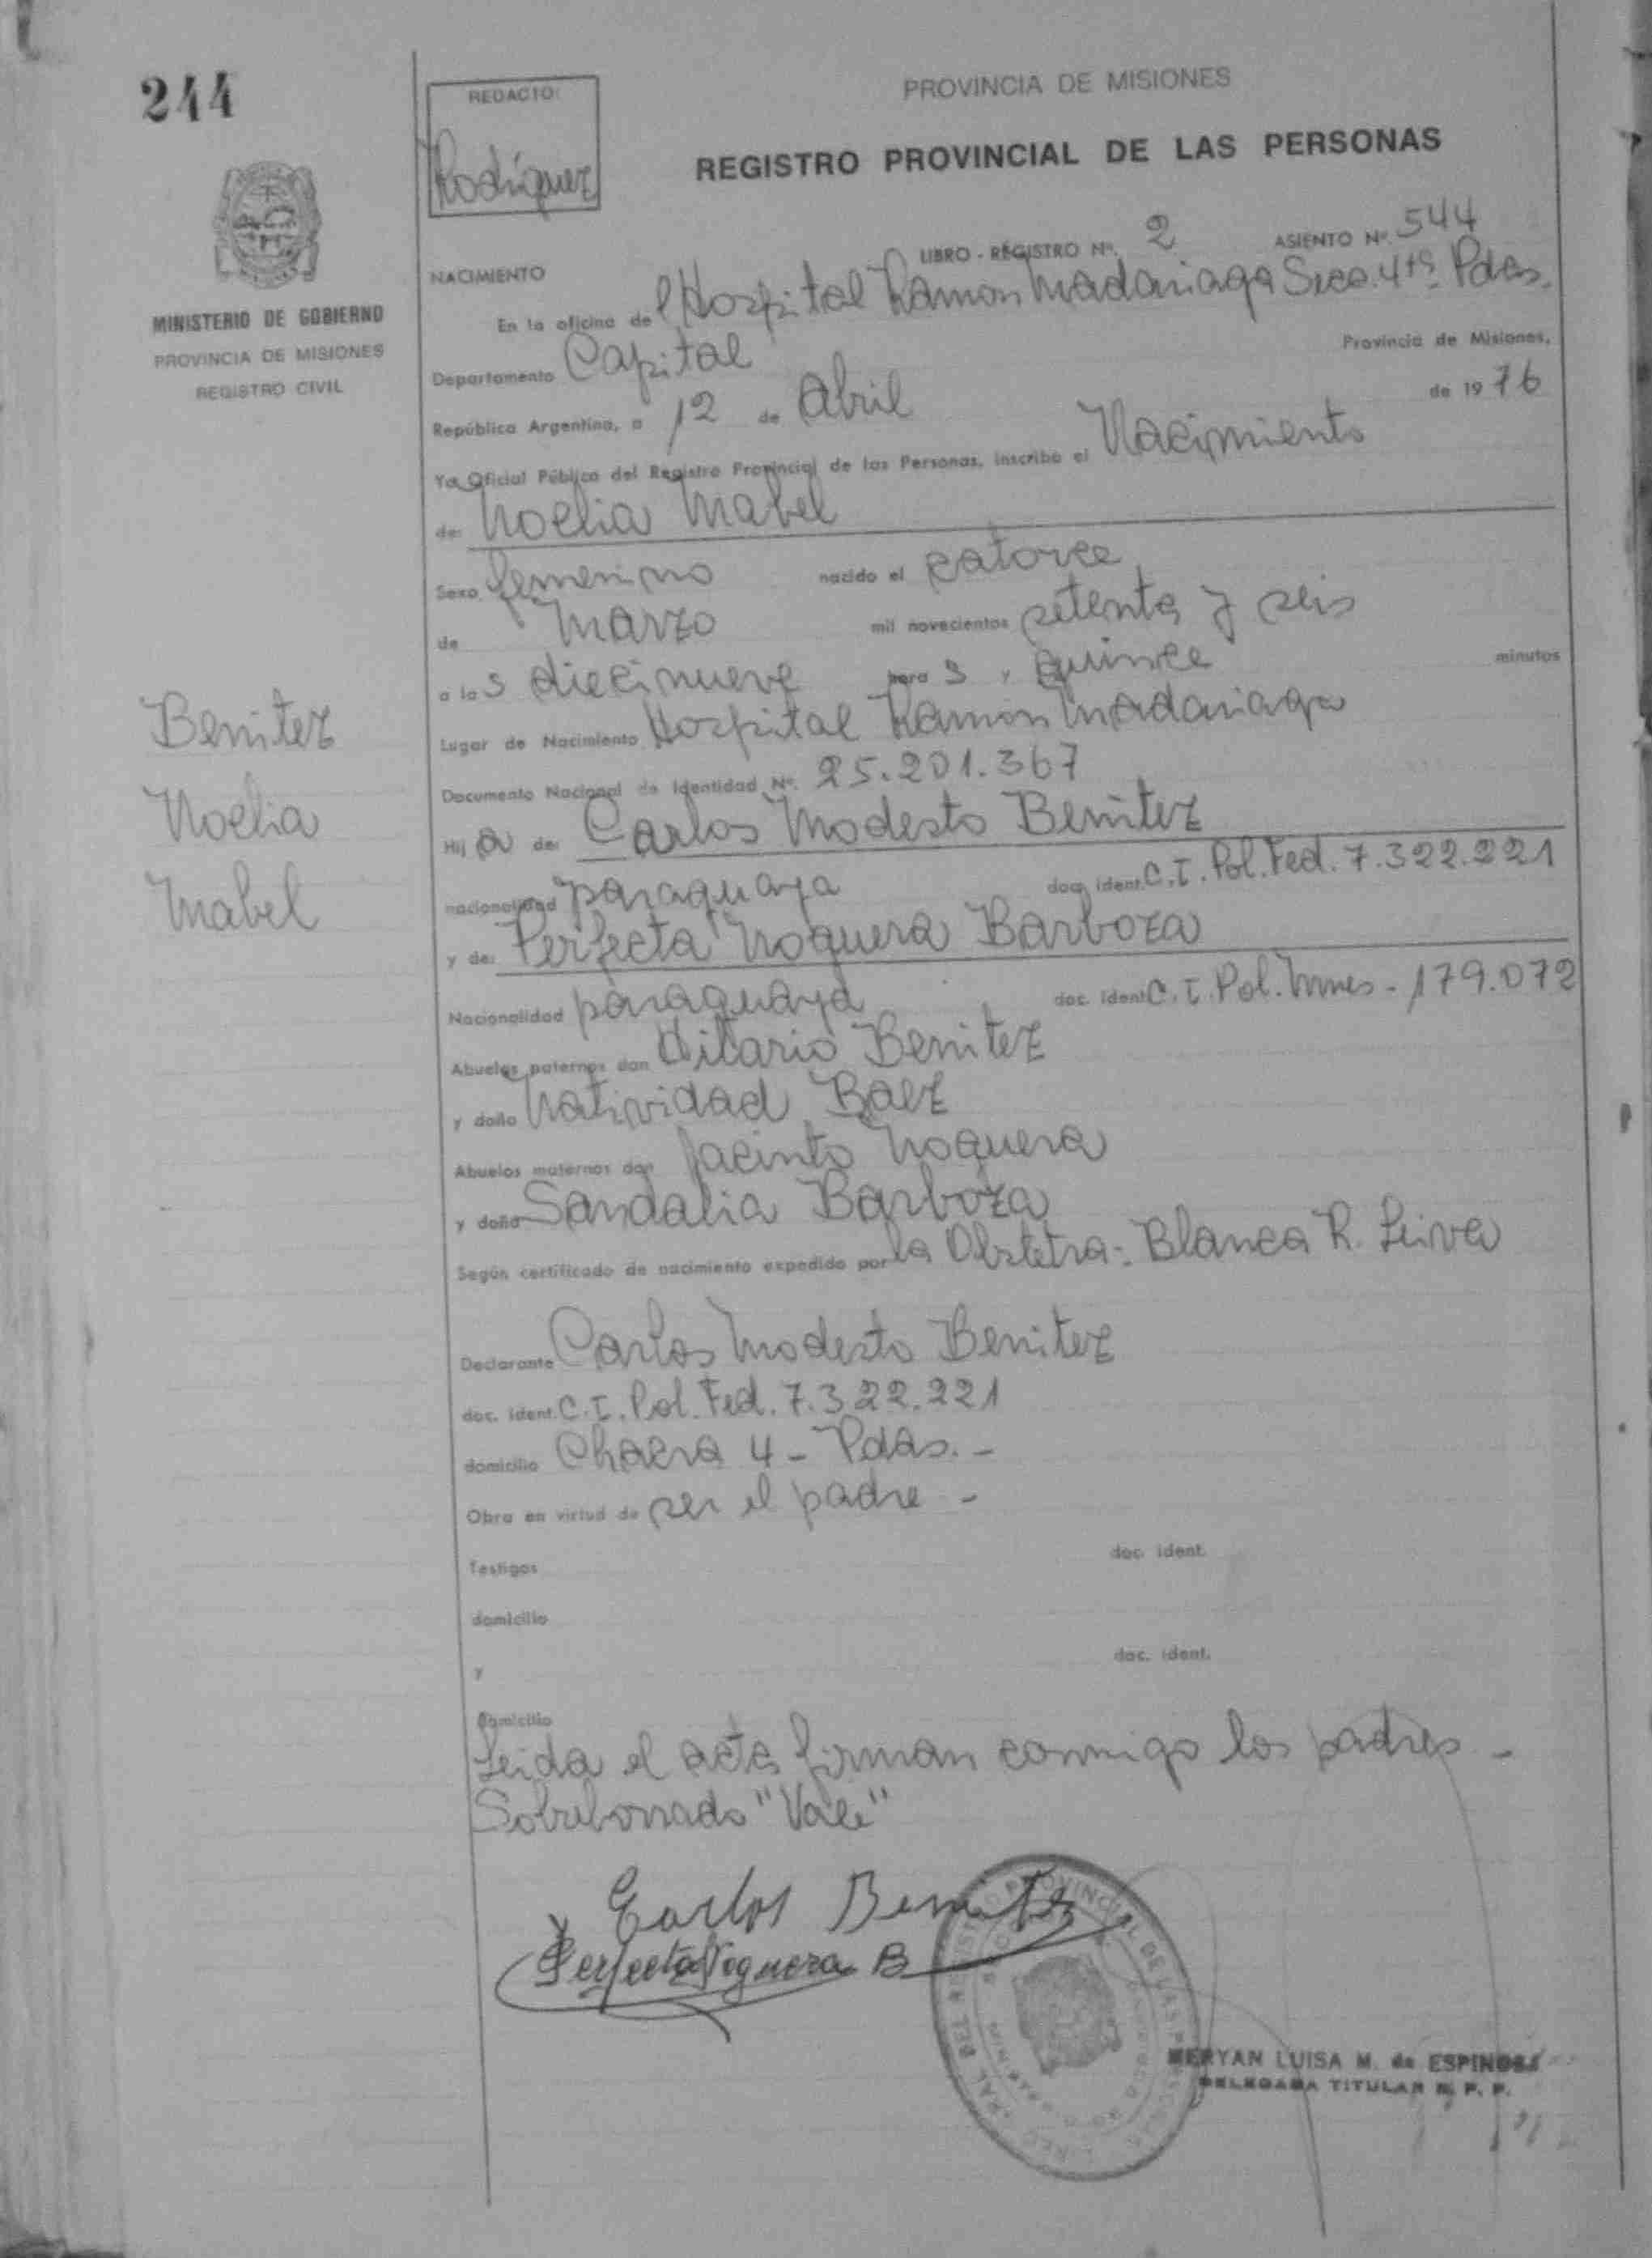 244
REDACTO:
Rodríguez
PROVINCIA DE MISIONES
REGISTRO PROVINCIAL DE LAS PERSONAS
MINISTERIO DE GOBIERNO
PROVINCIA DE MISIONES
REGISTRO CIVIL
LIBRO - REGISTRO Nº. 2 ASIENTO Nº. 544
NACIMIENTO
En la oficina del Hospital Ramon Madariaga Secc. 4ta Pdas.
Departamento Capital Provincia de Misiones,
República Argentina, a 12 de Abril de 1976
Yo, Oficial Público del Registro Provincial de las Personas, inscribo el Nacimiento
de: Noelia Mabel
Sexo femenino nacido el catorce
de Marzo mil novecientos setenta y seis
a las diecinueve hora s y quince minutos
Lugar de Nacimiento Hospital Ramon Madariaga
Documento Nacional de Identidad Nº. 25.201.367
Hij a de: Carlos Modesto Benitez
nacionalidad paraguaya doc. ident. C.I. Pol. Fed. 7.322.221
y de: Perfecta Noguera Barboza
Nacionalidad paraguaya doc. ident. C.I. Pol. Mnes - 179.072
Abuelos paternos don Hilario Benitez
y doña Natividad Baez
Abuelos maternos don Jacinto Noguera
y doña Sandalia Barboza
Según certificado de nacimiento expedido por la Obstetra: Blanca R. Leiva
Declarante Carlos Modesto Benitez
doc. ident. C.I. Pol. Fed. 7.322.221
domicilio Chacra 4 - Pdas. -
Obra en virtud de ser el padre -
Testigos doc. ident.
domicilio
y doc. ident.
domicilio
Leida el acta firman conmigo los padres -
Sobreborrado "Vale"
Benitez
Noelia
Mabel
Carlos Benitez
Perfecta Noguera B
PROVINCIAL DE LAS PERSONAS
MERYAN LUISA M. de ESPINOSA
DELEGADA TITULAR R. P. P.